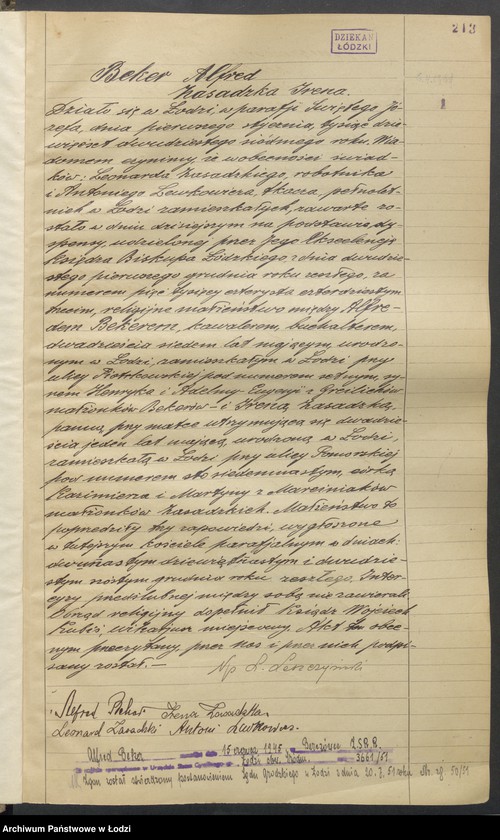 213
DZIEKAN
ŁÓDZKI
1
Beker Alfred
Zasadzka Irena.
Działo się w Łodzi, w parafji Świętego Jó-
zefa, dnia pierwszego stycznia, tysiąc dzie-
więćset dwudziestego siódmego roku. Wia-
domem czynimy, że w obecności świad-
ków: Leonarda Zasadzkiego, robotnika
i Antoniego Lewkowicza, tkacza, pełnolet-
nich w Łodzi zamieszkałych, zawarte zo-
stało w dniu dzisiejszym na podstawie dy-
spensy, udzielonej przez Jego Ekscelencję
Księdza Biskupa Łódzkiego z dnia dwudzie-
stego pierwszego grudnia roku zeszłego, za
numerem pięć tysięcy czterysta czterdziestym
ósmym, religijne małżeństwo między Alfre-
dem Bekerem, kawalerem, buchalterem,
dwadzieścia siedem lat mającym, urodzo-
nym w Łodzi, zamieszkałym w Łodzi przy
ulicy Piotrkowskiej pod numerem setnym, sy-
nem Henryka i Adelmy Eugenji z
małżonków Bekerów – i Ireną Zasadzką,
panną, przy matce utrzymującą się, dwadzie-
ścia jeden lat mającą, urodzoną w Łodzi,
zamieszkałą w Łodzi przy ulicy Pomorskiej
pod numerem sto siedemnastym, córką
Kazimierza i Martyny z Marciniaków
małżonków Zasadzkich. Małżeństwo to
poprzedziły trzy zapowiedzi, wygłoszone
w tutejszym kościele parafjalnym w dniach:
dwunastym, dziewiętnastym i dwudzie-
stym szóstym grudnia roku zeszłego. Inter-
cyzy przedślubnej między sobą nie zawierali.
Obrząd religijny dopełnił Ksiądz Wojciech
Kubiś, wikarjusz miejscowy. Akt ten obec-
nym przeczytany, przez nas i przez nich podpi-
sany został. —
Alfred Beker Irena Zasadzka
Leonard Zasadzki Antoni
Alfred Beker 15 1945 Z.S.R.R.
3661/51
Zgon został stwierdzony postanowieniem Sądu Grodzkiego w Łodzi z dnia 20.7.51 roku Nr. 50/51
Archiwum Państwowe w Łodzi